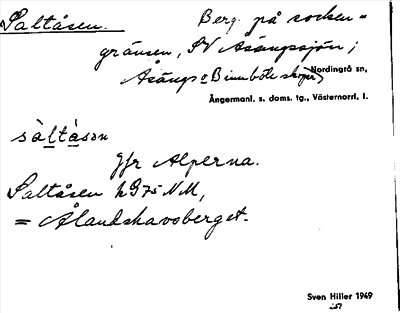 Saltåsen. Berg på socken=
gränsen, SV Åsångssjön;
Åsångs o Binnböle skogar, Nordingrå sn,
Ångermanl. s. doms. tg., Västernorrl. l.
sàltåsɜn
Jfr Alperna.
Saltåsen h 975 NM,
= Ålandshavsberget.
Sven Hiller 1949